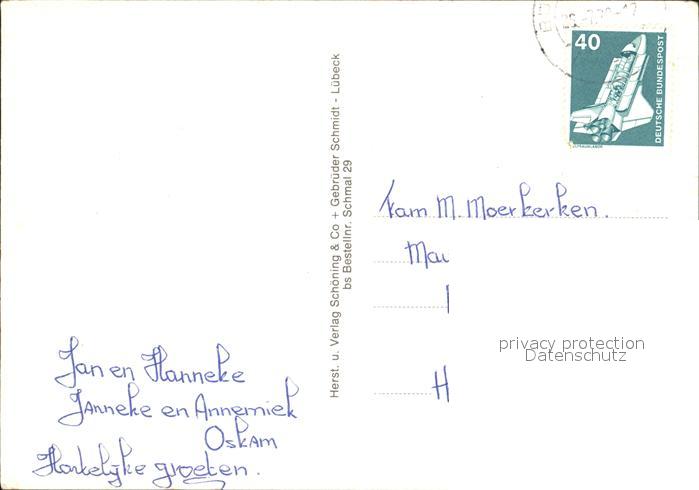 40
DEUTSCHE BUNDESPOST
Herst. u. Verlag Schöning & Co + Gebrüder Schmidt - Lübeck
bs Bestellnr. Schmal 29
Fam M. Moerkerken.
privacy protection
Datenschutz
H
Jan en Hanneke
Janneke en Annemiek
Oskam
Hartelijke groeten.